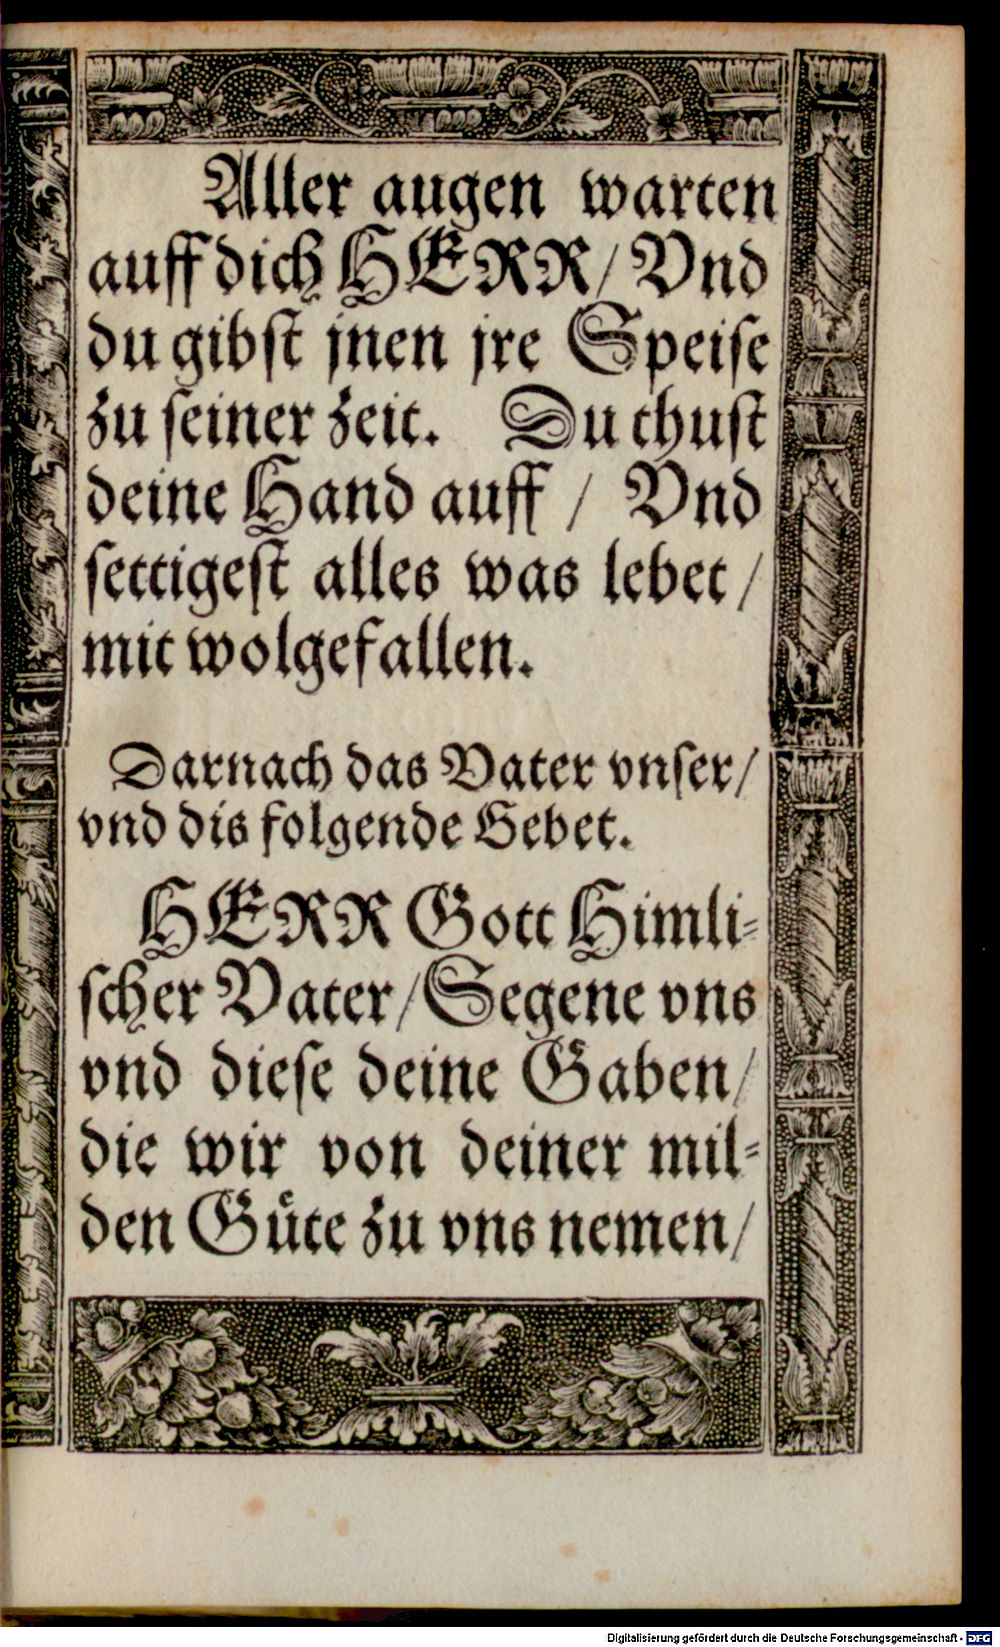 Aller augen warten
auff dich HERR/ Vnd
du gibst jnen jre Speise
zu seiner zeit. Du thust
deine Hand auff / Vnd
settigest alles was lebet /
mit wolgefallen.
Darnach das Vater vnser/
vnd dis folgende Gebet.
HERR Gott Himli-
scher Vater/ Segene vns
vnd diese deine Gaben/
die wir von deiner mil-
den Guͤte zu vns nemen/
Digitalisierung gefördert durch die Deutsche Forschungsgemeinschaft - DFG